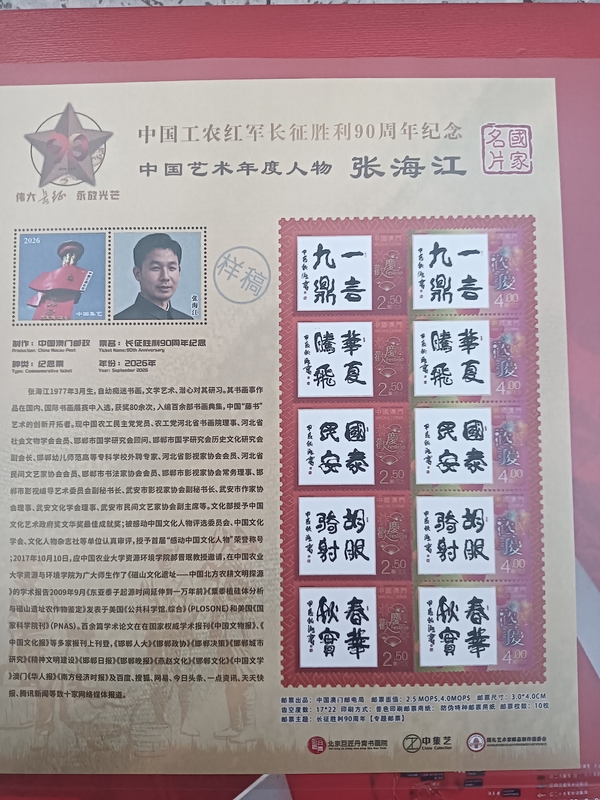 中国工农红军长征胜利90周年纪念
中国艺术年度人物 张海江
國家名片
伟大长征 永放光芒
2026
中国集艺
张海江
样稿
制作：中国澳门邮政
Production: China Macau Post
票名：长征胜利90周年纪念
Ticket Name:90th Anniversary
种类：纪念票
Type: Commemorative ticket
年份：2026年
Year: September 2026
张海江1977年3月生，自幼痴迷书画，文学艺术、潜心对其研习。其书画事作
品在国内、国际书画展赛中入选，获奖80余次，入编百余部书画典集，中国"藤书"
艺术的创新开拓者。现中国农工民主党党员、农工党河北省书画院理事、河北省
社会文物学会会员、邯郸市国学研究会顾问、邯郸市国学研究会历史文化研究会
副会长、邯郸幼儿师范高等专科学校外聘专家、河北省影视家协会会员、河北省
民间文艺家协会会员、邯郸市书法家协会会员、邯郸市影视家协会常务理事、邯
郸市影视编导艺术委员会副秘书长、武安市影视家协会副秘书长、武安市作家协
会理事、武安文化学会理事、武安市民间文艺家协会副主席等。文化部授予中国
文化艺术政府奖文华奖最佳成就奖；被感动中国文化人物评选委员会、中国文化
学会、文化人物杂志社等单位认真审评，授予首届"感动中国文化人物"荣誉称号
;2017年10月10日，应中国农业大学资源环境学院邮晋珉教授邀请，在中国农业
大学资源与环境学院为广大师生作了《磁山文化遗址——中国北方农耕文明探源
》的学术报告2009年9月《东亚黍子起源时间延伸到一万年前》《粟黍植硅体分析
与磁山遗址农作物鉴定》发表于美国《公共科学馆.综合》(PLOSONE)和美国《国
家科学院刊》(PNAS)。百余篇学术论文在在国家权威学术报刊《中国文物报》、《
中国文化报》等多家报刊上刊登，《邯郸人大》《邯郸政协》《邯郸决策》《邯郸城市
研究》《精神文明建设》《邯郸日报》《邯郸晚报》《燕赵文化》《邯郸文化》《中国文学
》澳门《华人报》《南方经济时报》及百度、搜狐、网易、今日头条、一点资讯、天天快
报、腾讯新闻等数十家网络媒体报道。
一言九鼎
2.50
一言九鼎
4.00
華夏騰飛
2.50
華夏騰飛
4.00
國泰民安
2.50
國泰民安
4.00
胡服骑射
2.50
胡服骑射
4.00
春華秋實
2.50
春華秋實
4.00
邮票出品：中国澳门邮电局 邮票面值：2.5 MOP$,4.0MOP$ 邮票尺寸：3.0*4.0CM
齿空度数：17*22 印刷方式：普色印刷邮票用纸：防伪特种邮票用纸 邮票枚数：10枚
邮票主题：长征胜利90周年【专题邮票】
北京巨匠丹青书画院
中集艺
China Collection